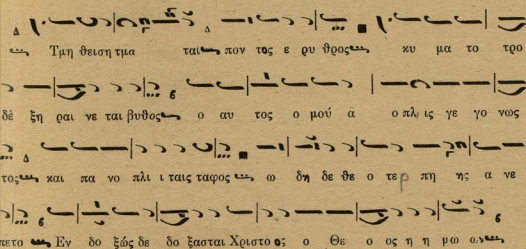 Τμη θειση τμα ται πον τος ε ρυ θρος κυ μα το τρο
δὲ ξη ραι νε ται βυθος ο αυ τος ο μού ἀ οπλ ις γε γο νως
τος και πα νο πλι ι ταις ταφος ω δη δε θε ο τερ πη ης α νε
πετο Εν δο ξώς δε δο ξασται Χριστο ος ο Θε ο ος η η μω ων